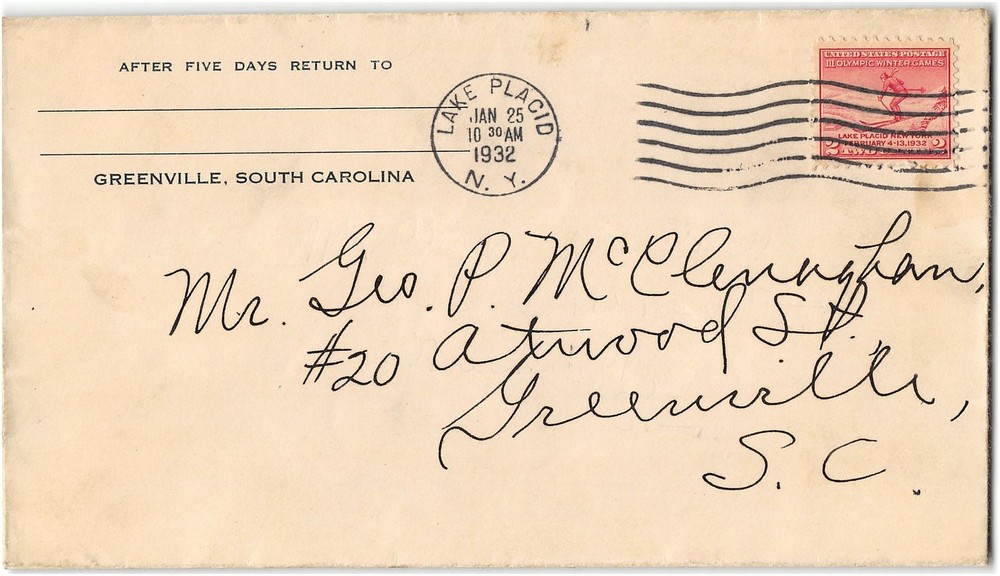 AFTER FIVE DAYS RETURN TO
GREENVILLE, SOUTH CAROLINA
LAKE PLACID
JAN 25
10 30 AM
1932
N. Y.
UNITED STATES POSTAGE
III OLYMPIC WINTER GAMES
LAKE PLACID NEW YORK
FEBRUARY 4-13, 1932
2 TWO CENTS 2
Mr. Geo. P. McClenaghan,
#20 Atwood St.,
Greenville,
S. C.